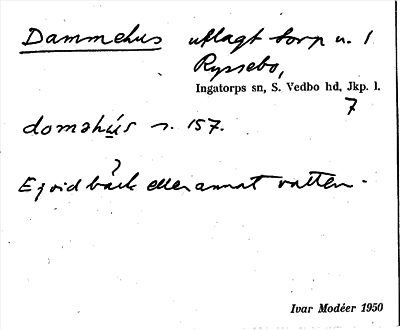 Dammehus utlagt torp u. 1
Ryssebo,
Ingatorps sn, S. Vedbo hd, Jkp. l.
7
doməhús s. 157.
Ej vid bäck eller annat vatten.
Ivar Modéer 1950